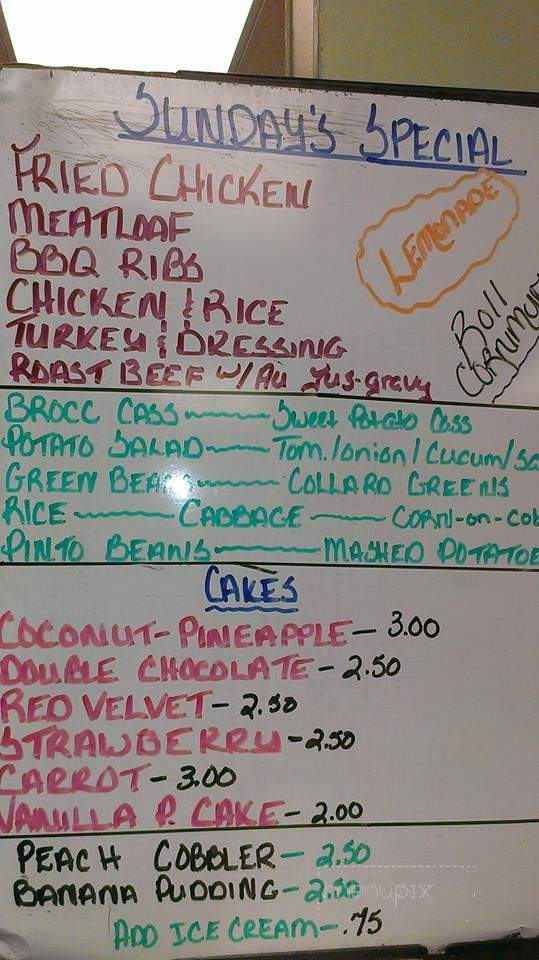 SUNDAY'S SPECIAL
FRIED CHICKEN
MEATLOAF
BBQ RIBS
CHICKEN & RICE
TURKEY & DRESSING
ROAST BEEF W/ AU JUS-gravy
LEMONADE
Roll
BROCC CASS — Sweet Potato Cass
POTATO SALAD — Tom./onion/Cucum/
GREEN BEANS — COLLARD GREENS
RICE — CABBAGE — CORN-on-cob
PINTO BEANS — MASHED POTATOE
CAKES
COCONUT-PINEAPPLE — 3.00
DOUBLE CHOCOLATE — 2.50
RED VELVET — 2.50
STRAWBERRY — 2.50
CARROT — 3.00
VANILLA P. CAKE — 2.00
PEACH COBBLER — 2.50
BANANA PUDDING — 2.50
ADD ICE CREAM — .75
menupix